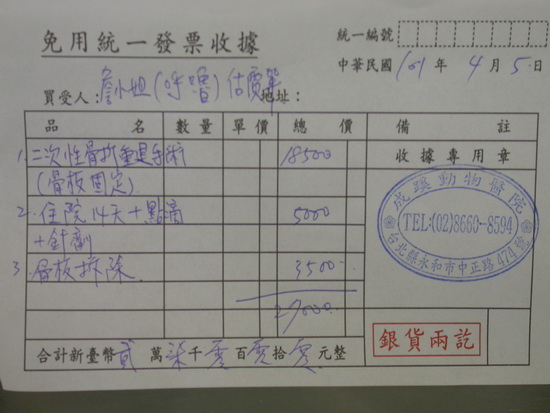 免用統一發票收據
統一編號
中華民國 101 年 4 月 5 日
買受人：詹小姐(呼嚕) 估價單 地址：
品名 數量 單價 總價 備註
1. 二次性骨折重建手術 18500
收據專用章
(骨板固定)
2. 住院14天+點滴 5000
+針劑
3. 骨板拆除 3500
27000
成蹊動物醫院
TEL:(02)8660-8594
台北縣永和市中正路474號
銀貨兩訖
合計新臺幣 貳 萬 柒 千 零 百 零 拾 零 元整